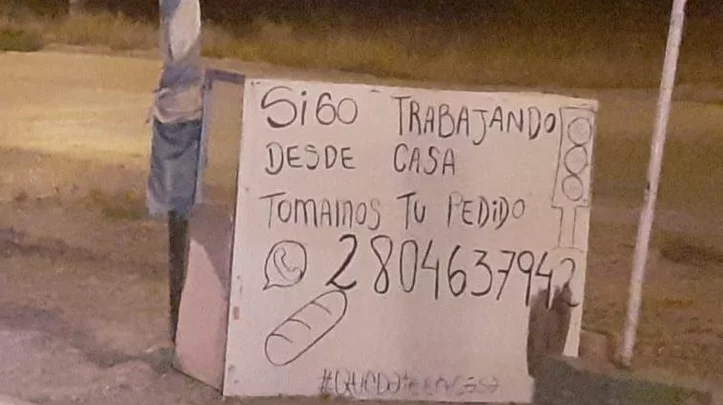 SiGO TRABAJANDO
DESDE CASA
TOMAMOS TU PEDiDO
2804637942
#QUEDateenCasa